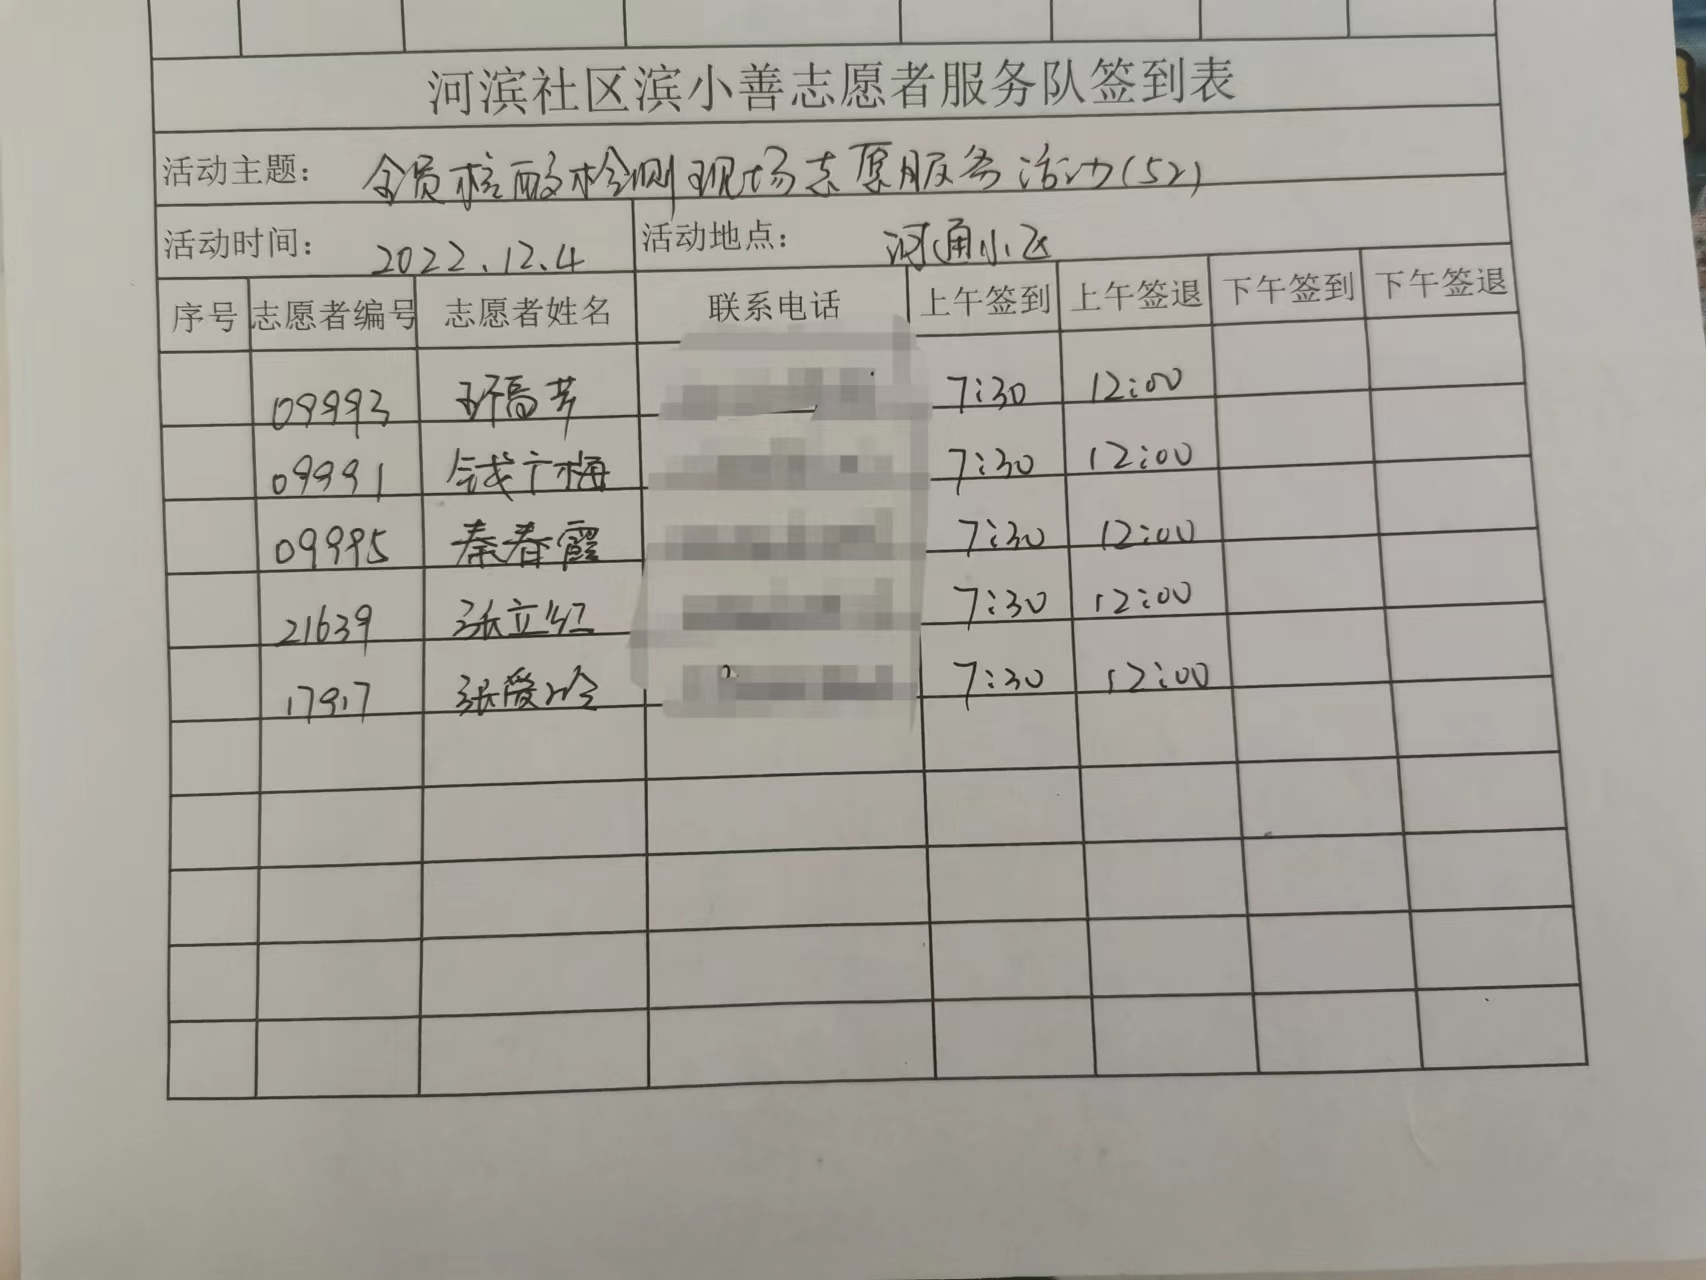 河滨社区滨小善志愿者服务队签到表
活动主题： 全员核酸检测现场志愿服务活动(52)
活动时间： 2022.12.4 活动地点： 河通小区
序号 志愿者编号 志愿者姓名 联系电话 上午签到 上午签退 下午签到 下午签退
09993 7:30 12:00
09991 钱广梅 7:30 12:00
09995 秦春霞 7:30 12:00
21639 张立红 7:30 12:00
17917 张爱玲 7:30 12:00